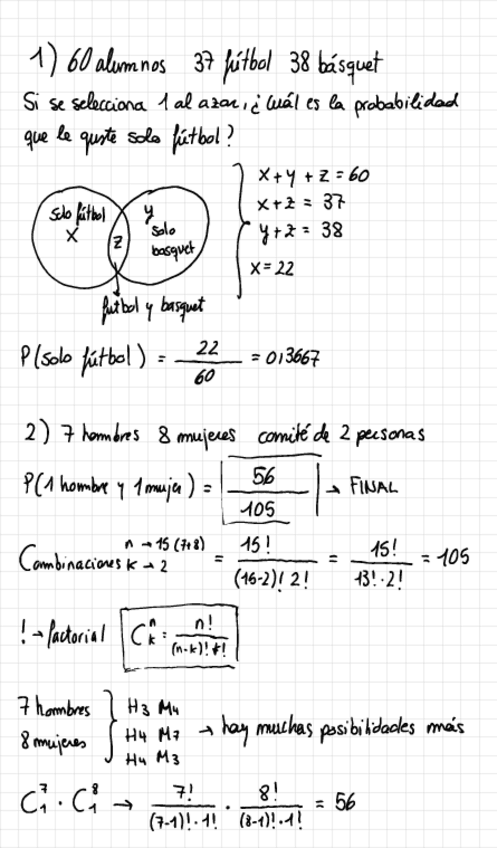 1) 60 alumnos 37 fútbol 38 básquet
Si se selecciona 1 al azar, ¿cuál es la probabilidad
que le guste solo fútbol?
solo fútbol
X
Z
y
solo
basquet
futbol y basquet
x + y + z = 60
x + z = 37
y + z = 38
x = 22
P(solo fútbol) = 22/60 = 0,3667
2) 7 hombres 8 mujeres comité de 2 personas
P(1 hombre y 1 mujer) = 56/105 → FINAL
Combinaciones n → 15 (7+8) k → 2 = 15!/(15-2)! 2! = 15!/13!·2! = 105
! → factorial C^n_k = n!/(n-k)!·k!
7 hombres
8 mujeres
H3 M4
H4 M7
H4 M3
→ hay muchas posibilidades más
C^7_1 · C^8_1 → 7!/(7-1)!·1! · 8!/(8-1)!·1! = 56